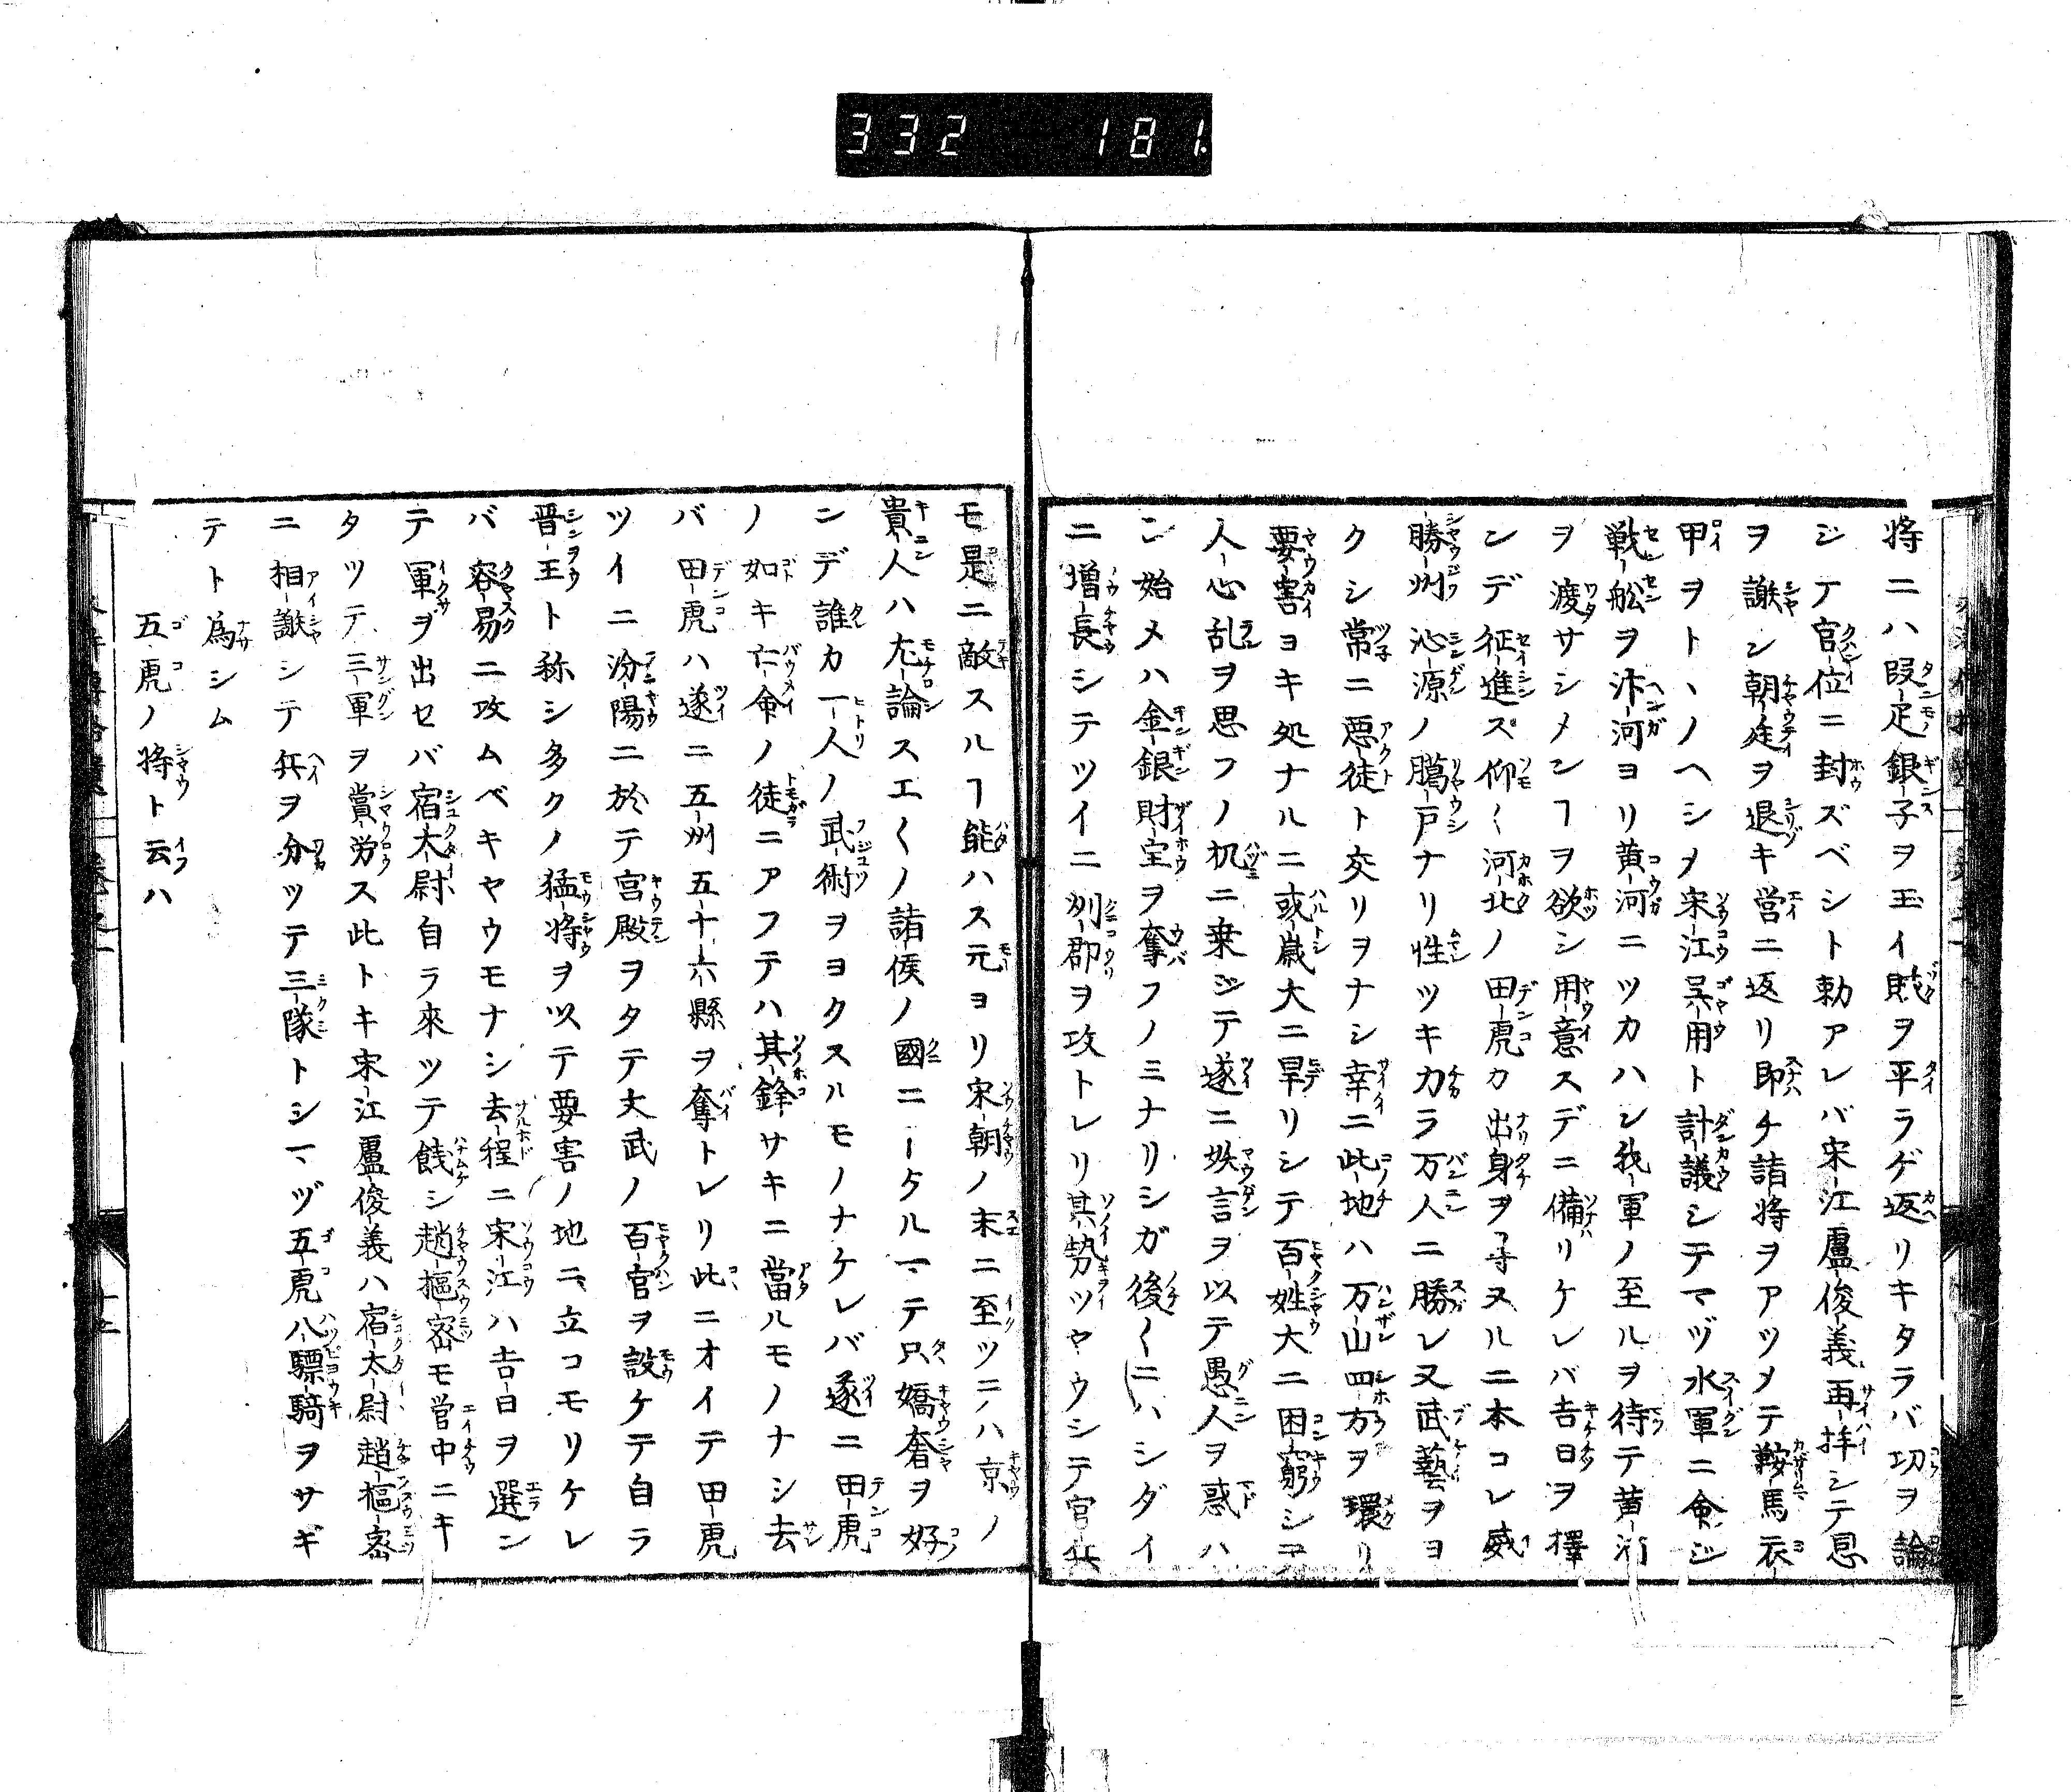 332 181
将ニハ段疋銀子ヲ玉イ賊ヲ平ラゲ返リキタラバ切ヲ論
ジテ官位ニ封ズベシト勅アレバ宋江盧俊義再拝シテ恩
ヲ謝シ朝廷ヲ退キ営ニ返リ即チ諸将ヲアツメテ鞍馬衣
甲ヲトヽノヘシメ宋江呉用ト計議シテマヅ水軍ニ命ジ
戦舩ヲ汴河ヨリ黄河ニツカハシ我軍ノ至ルヲ待テ黄河
ヲ渡サシメンヿヲ欲シ用意スデニ備リケレバ吉日ヲ擇
ンデ征進ス仰〱河北ノ田虎カ出身ヲ尋ヌルニ本コレ威
勝州沁源ノ臈戸ナリ性ツキカラ万人ニ勝レ又武藝ヲヨ
クシ常ニ悪徒ト交リヲナシ幸ニ此地ハ万山四方ヲ環リ
要害ヨキ処ナルニ或歳大ニ旱リシテ百姓大ニ困窮シテ
人心乱ヲ思フノ机ニ乗ジテ遂ニ妖言ヲ以テ愚人ヲ惑ハ
ン始メハ金銀財宝ヲ奪フノミナリシガ後〱ニハシダイ
ニ増長シテツイニ州郡ヲ攻トレリ其勢ツヤウシテ官兵
モ是ニ敵スルヿ能ハス元ヨリ宋朝ノ末ニ至ツニハ京ノ
貴人ハ尤論スエ〱ノ諸侯ノ國ニータルマヽテ只嬌奢ヲ好
ンデ誰カ一人ノ武術ヲヨクスルモノナケレバ遂ニ田虎
ノ如キ亡命ノ徒ニアフテハ其鋒サキニ當ルモノナシ去
バ田虎ハ遂ニ五州五十六縣ヲ奪トレリ此ニオイテ田虎
ツイニ汾陽ニ於テ宮殿ヲタテ文武ノ百官ヲ設ケテ自ラ
晋王ト称シ多クノ猛将ヲ以テ要害ノ地ニ立コモリケレ
バ容易ニ攻ムベキヤウモナシ去程ニ宋江ハ吉日ヲ選ン
テ軍ヲ出セバ宿太尉自ラ來ツテ餞シ趙樞密モ営中ニキ
タツテ三軍ヲ賞労ス此トキ宋江盧俊義ハ宿太尉趙樞密
ニ相謝シテ兵ヲ分ツテ三隊トシマヅ五虎八驃騎ヲサギ
テト為シム
五虎ノ将ト云ハ